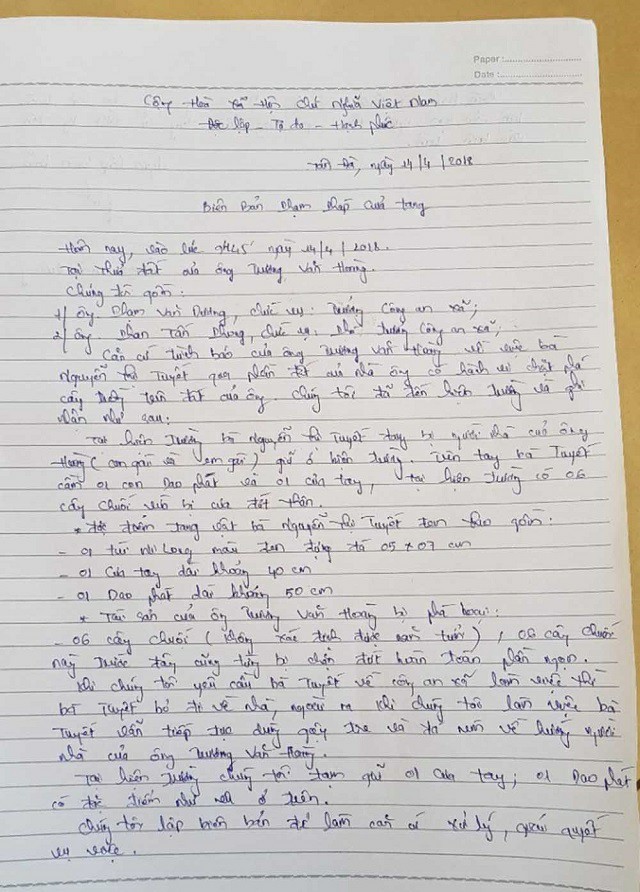 Paper :
Date :
Cộng Hoà Xã Hội Chủ Nghĩa Việt Nam
Độc lập - Tự do - Hạnh phúc
ngày 14/4/2018
Biên Bản Phạm Pháp Quả tang
Hôm nay, vào lúc 9h45' ngày 14/4/2018.
Tại thửa đất của ông Trương Văn Hoàng.
Chúng tôi gồm:
1/ Ông. Phạm Văn Dương, chức vụ: Trưởng Công an xã;
2/ Ông. Phan Tấn chức vụ: Phó trưởng Công an xã;
Căn cứ trình báo của ông Trương Văn Hoàng về việc bà
Nguyễn Thị Tuyết qua phần đất của nhà ông có hành vi chặt phá
cây trồng trên đất của ông. Chúng tôi đã đến hiện trường và ghi
nhận như sau:
Tại hiện trường bà Nguyễn Thị Tuyết bị người nhà của ông
Hoàng (con gái và em gái) giữ ở hiện trường. Trên tay bà Tuyết
cầm 01 con Dao phát và 01 cưa tay, tại hiện trường có 06
cây chuối bị cưa đứt thân.
* Đặc điểm tang vật bà Nguyễn Thị Tuyết đem theo gồm:
- 01 túi ni long màu đen đựng đá 05 x 07 cm
- 01 Cưa tay dài khoảng 40 cm
- 01 Dao phát dài khoảng 50 cm
* Tài sản của ông Trương Văn Hoàng bị phá hoại:
- 06 cây chuối (không xác định được năm tuổi), 06 cây chuối
này trước đây cũng từng bị chặn đứt hoàn toàn phần ngọn.
Khi chúng tôi yêu cầu bà Tuyết về công an xã làm việc thì
bà Tuyết bỏ đi về nhà, ngoài ra khi chúng tôi làm việc bà
Tuyết vẫn tiếp tục dùng gậy tre và đá ném về hướng người
nhà của ông Trương Văn Hoàng.
Tại hiện trường chúng tôi tạm giữ 01 Cưa tay; 01 Dao phát
có đặc điểm như nêu ở trên.
Chúng tôi lập biên bản để làm căn cứ xử lý, giải quyết
vụ việc.